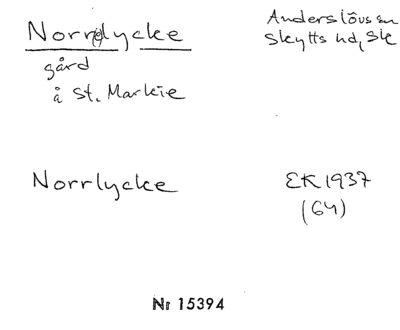 Norrelycke
Anderslövs sn
Skytts hd, Sk
gård
å St. Markie
Norrlycke
EK 1937
(64)
Nr 15394